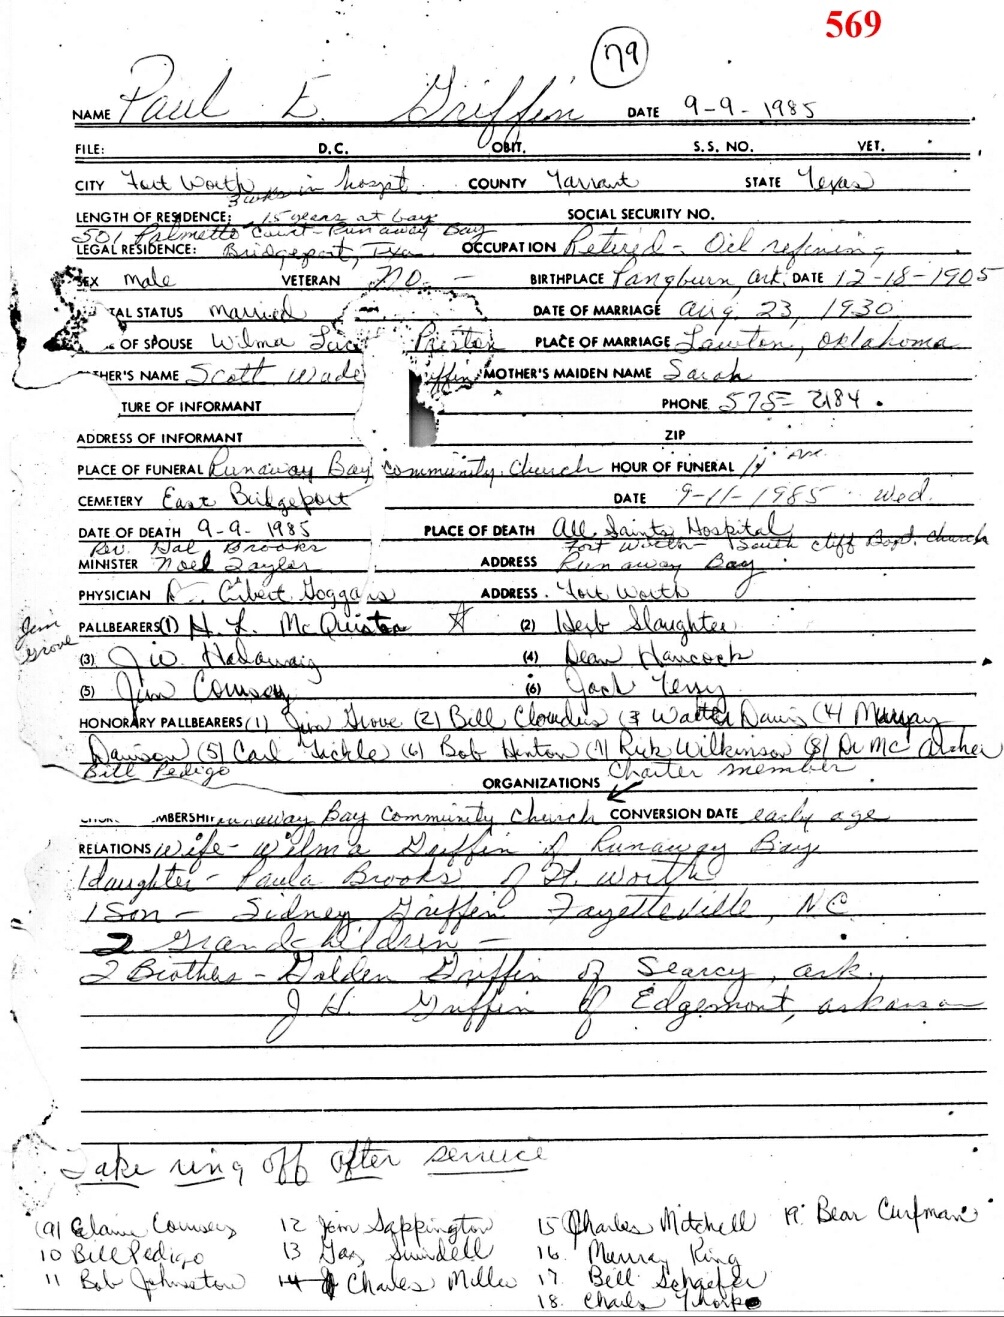 569
79
NAME Paul E. Griffin DATE 9-9-1985
FILE: D.C. OBIT. S.S. NO. VET.
CITY Fort Worth 3 wks in hospt COUNTY Tarrant STATE Texas
LENGTH OF RESIDENCE: 15 years at bay SOCIAL SECURITY NO.
501 Palmetto Court - Runaway Bay
LEGAL RESIDENCE: Bridgeport, OCCUPATION Retired - Oil refining
SEX male VETERAN NO - BIRTHPLACE Pangburn, Ark. DATE 12-18-1905
TAL STATUS married DATE OF MARRIAGE Aug 23, 1930
OF SPOUSE Wilma Preston PLACE OF MARRIAGE Lawton, Oklahoma
THER'S NAME Scott Wade ffin MOTHER'S MAIDEN NAME Sarah
TURE OF INFORMANT PHONE 575-2184
ADDRESS OF INFORMANT ZIP
PLACE OF FUNERAL Runaway Bay Community Church HOUR OF FUNERAL 11 am
CEMETERY East Bridgeport DATE 9-11-1985 Wed.
DATE OF DEATH 9-9-1985 PLACE OF DEATH All Saints Hospital
Rev. Hal Brooks Fort Worth - South Cliff Bapt. Church
MINISTER Noel ADDRESS Runaway Bay
PHYSICIAN Goggans ADDRESS. Fort Worth
Jim Grove
PALLBEARERS (1) H. L. McQuiston ☆ (2) Herb Slaughter
(3) Hadaway (4) Dean Hancock
(5) Jim Cowsey (6) Jack Terry
HONORARY PALLBEARERS (1) Jim Grove (2) Bill Cloudis (3 Walter Davis (4) Murray
Davison (5) Carl Tickle (6) Bob Hinton (7) Rick Wilkinson (8) Dr Mc
Bill Pedigo ORGANIZATIONS Charter member
MBERSHIP Runaway Bay Community Church CONVERSION DATE early age
RELATIONS Wife - Wilma Griffin of Runaway Bay
1 daughter - Paula Brooks of Ft. Worth
1 Son - Sidney Griffin Fayetteville, NC
2 Grandchildren -
2 Brothers - Golden Griffin of Searcy, Ark.,
J H. Griffin of Edgemont, Arkansas
Take ring off after service
(9) Elaine Cowsey 12 Jim Sappington 15 Charles Mitchell 19. Bear Curfman
10 Bill Pedigo 13 Swindell 16. Murray King
11 Bob Johnston 14 Charles Miller 17. Bill Schaefer
18. Charles Thorp